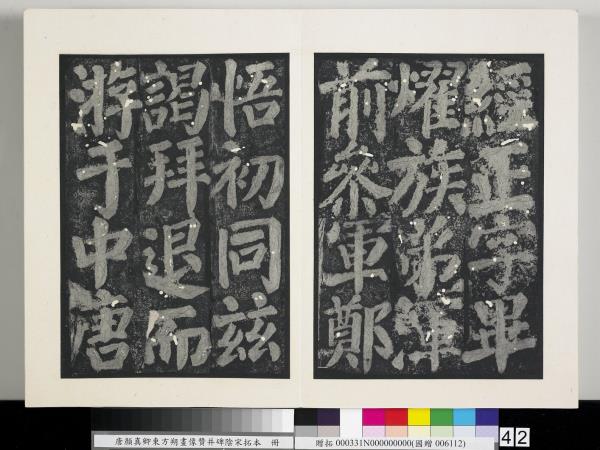 經正字畢
燿族弟渾
前參軍鄭
悟初同茲
謁拜退而
游于中唐
唐顏真卿東方朔畫像贊并碑陰宋拓本 冊
贈拓 000331N000000000(國贈 006112)
42